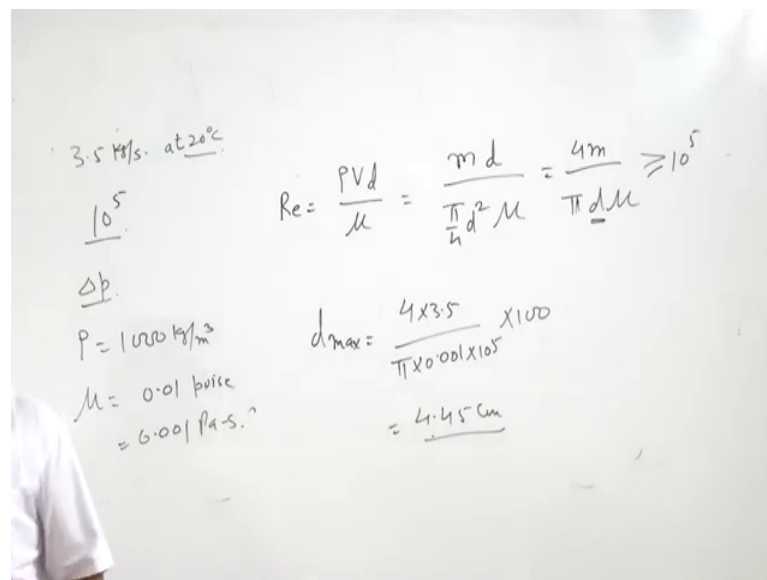 3.5 kg/s. at 20°C
10⁵
Δp.
ρ = 1000 kg/m³
μ = 0.01 poise
= 0.001 Pa-s.
Re = ρVd / μ = md / (π/4 d² μ) = 4m / (π d μ) ≥ 10⁵
dmax = (4×3.5) / (π×0.001×10⁵) ×100
= 4.45 cm